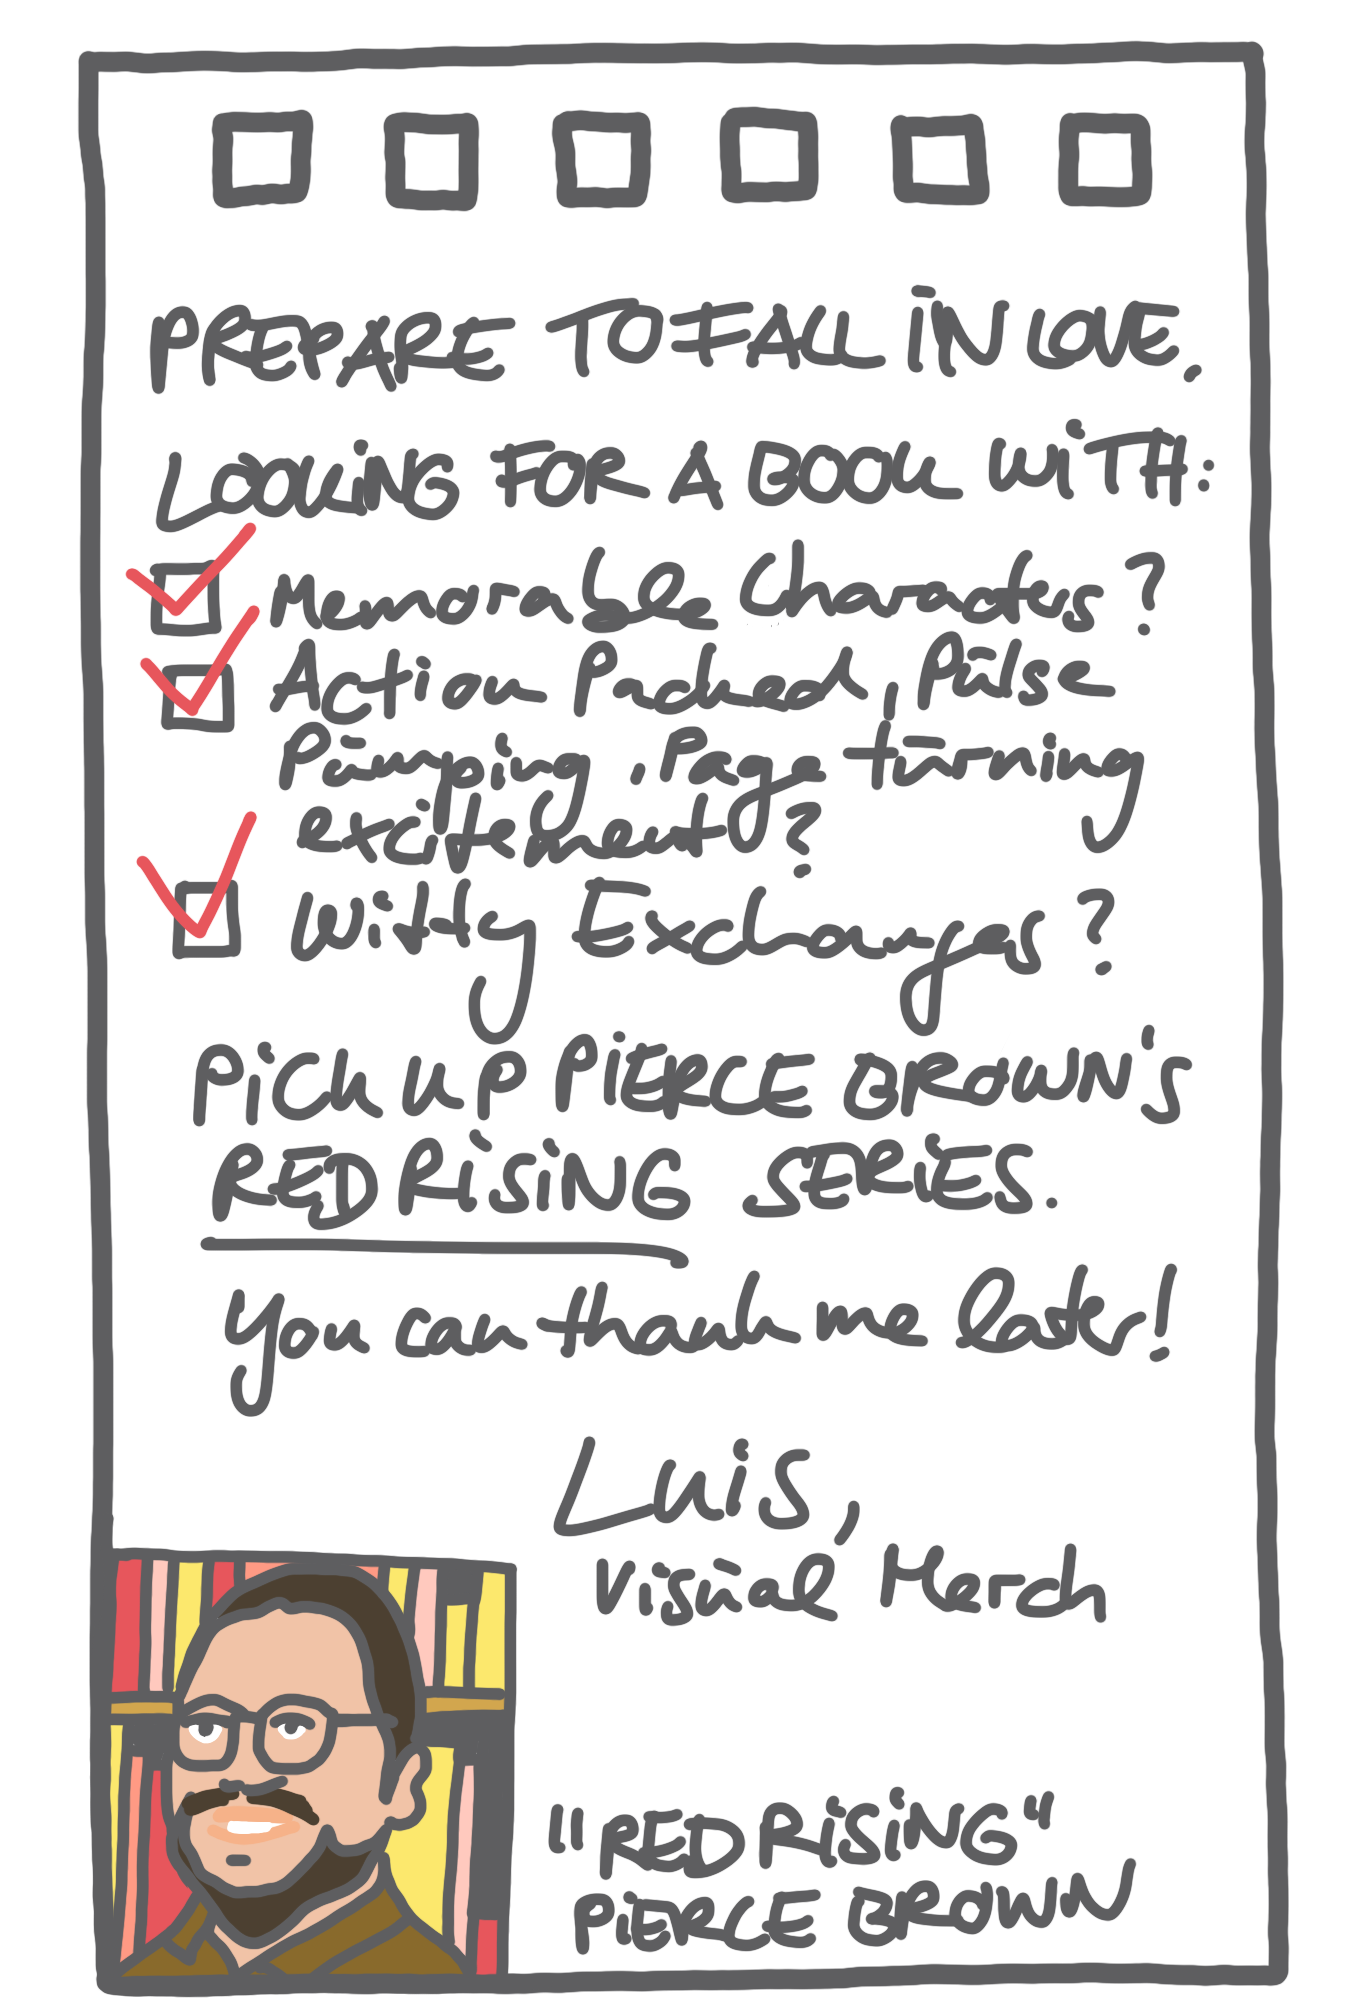 PREPARE TO FALL IN LOVE.
LOOKING FOR A BOOK WITH:
Memorable Characters?
Action Packed, Pulse
Pumping, Page turning
excitement?
Witty Exchanges?
PICK UP PIERCE BROWN'S
RED RISING SERIES.
You can thank me later!
Luis,
Visual Merch
"RED RISING"
PIERCE BROWN